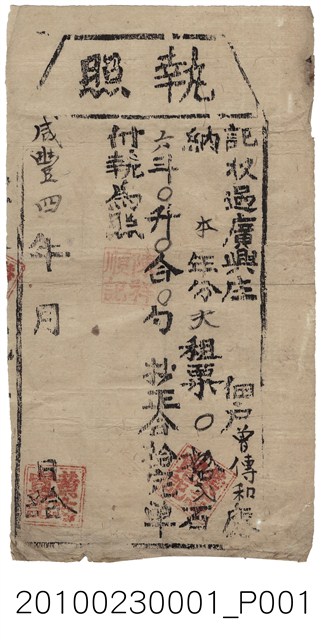 執照
記收過廣興庄 佃戶曾傳和
納本年分大租票〇拾八石
六斗〇升〇合〇勺
付執為照
咸豐四年 月 日給
20100230001_P001